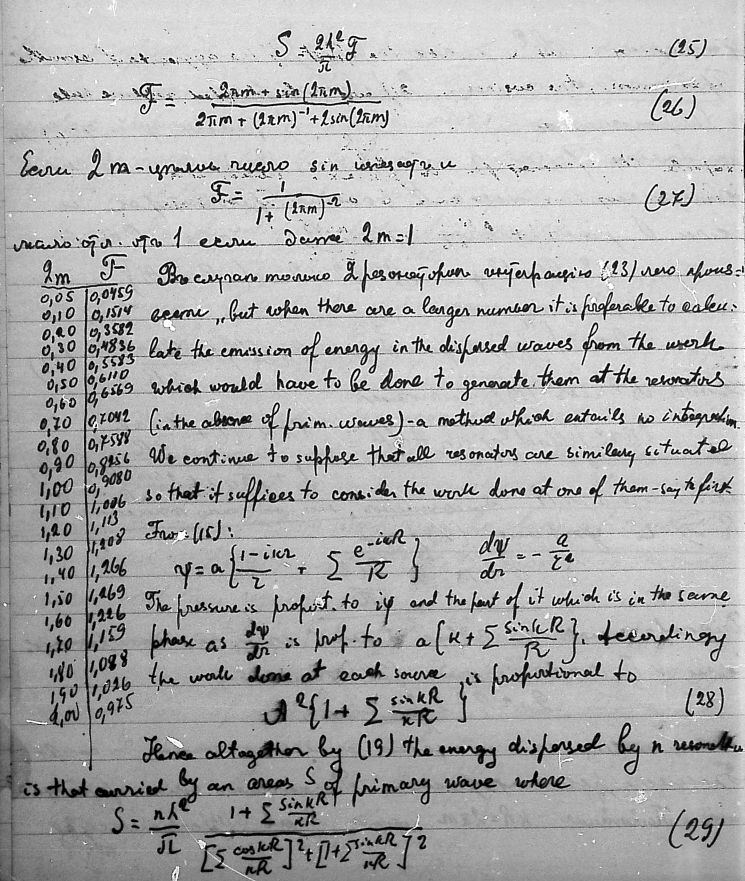 S = 2λ²/π F (25)
F = 2πm + sin(2πm) / 2πm + (2πm)⁻¹ + 2sin(2πm) (26)
Если 2m - число sin и
F = 1 / 1 + (2πm)⁻² (27)
мало отъ 1 если даже 2m=1
2m F
0,05 0,0459
0,10 0,1514
0,20 0,3582
0,30 0,4836
0,40 0,5583
0,50 0,6110
0,60 0,6569
0,70 0,7042
0,80 0,7588
0,90 0,8256
1,00 0,9080
1,10 1,006
1,20 1,113
1,30 1,208
1,40 1,266
1,50 1,269
1,60 1,226
1,70 1,159
1,80 1,088
1,90 1,026
2,00 0,975
Въ случаи только 2 (23) легко
„but when there are a larger number it is preferable to calcu-
late the emission of energy in the dispersed waves from the work
which would have to be done to generate them at the resonators
(in the absence of prim. waves) - a method which entails no integration.
We continue to suppose that all resonators are similarly situated
so that it suffices to consider the work done at one of them - say the first.
From (15):
ψ = a { 1-iκr / r + Σ e^-iκR / R } dψ/dr = - a/r²
The pressure is proport. to iψ and the part of it which is in the same
phase as dψ/dr is prop. to a {κ + Σ sin κR / R}. Accordingly
the work done at each source is proportional to
A² {1 + Σ sin kR / κR } (28)
Hence altogether by (19) the energy dispersed by n resonators
is that carried by an area S of primary wave where
S = nλ²/π 1 + Σ sin kR / κR / [Σ cos kR / κR]² + [1 + Σ sin kR / κR]² (29)